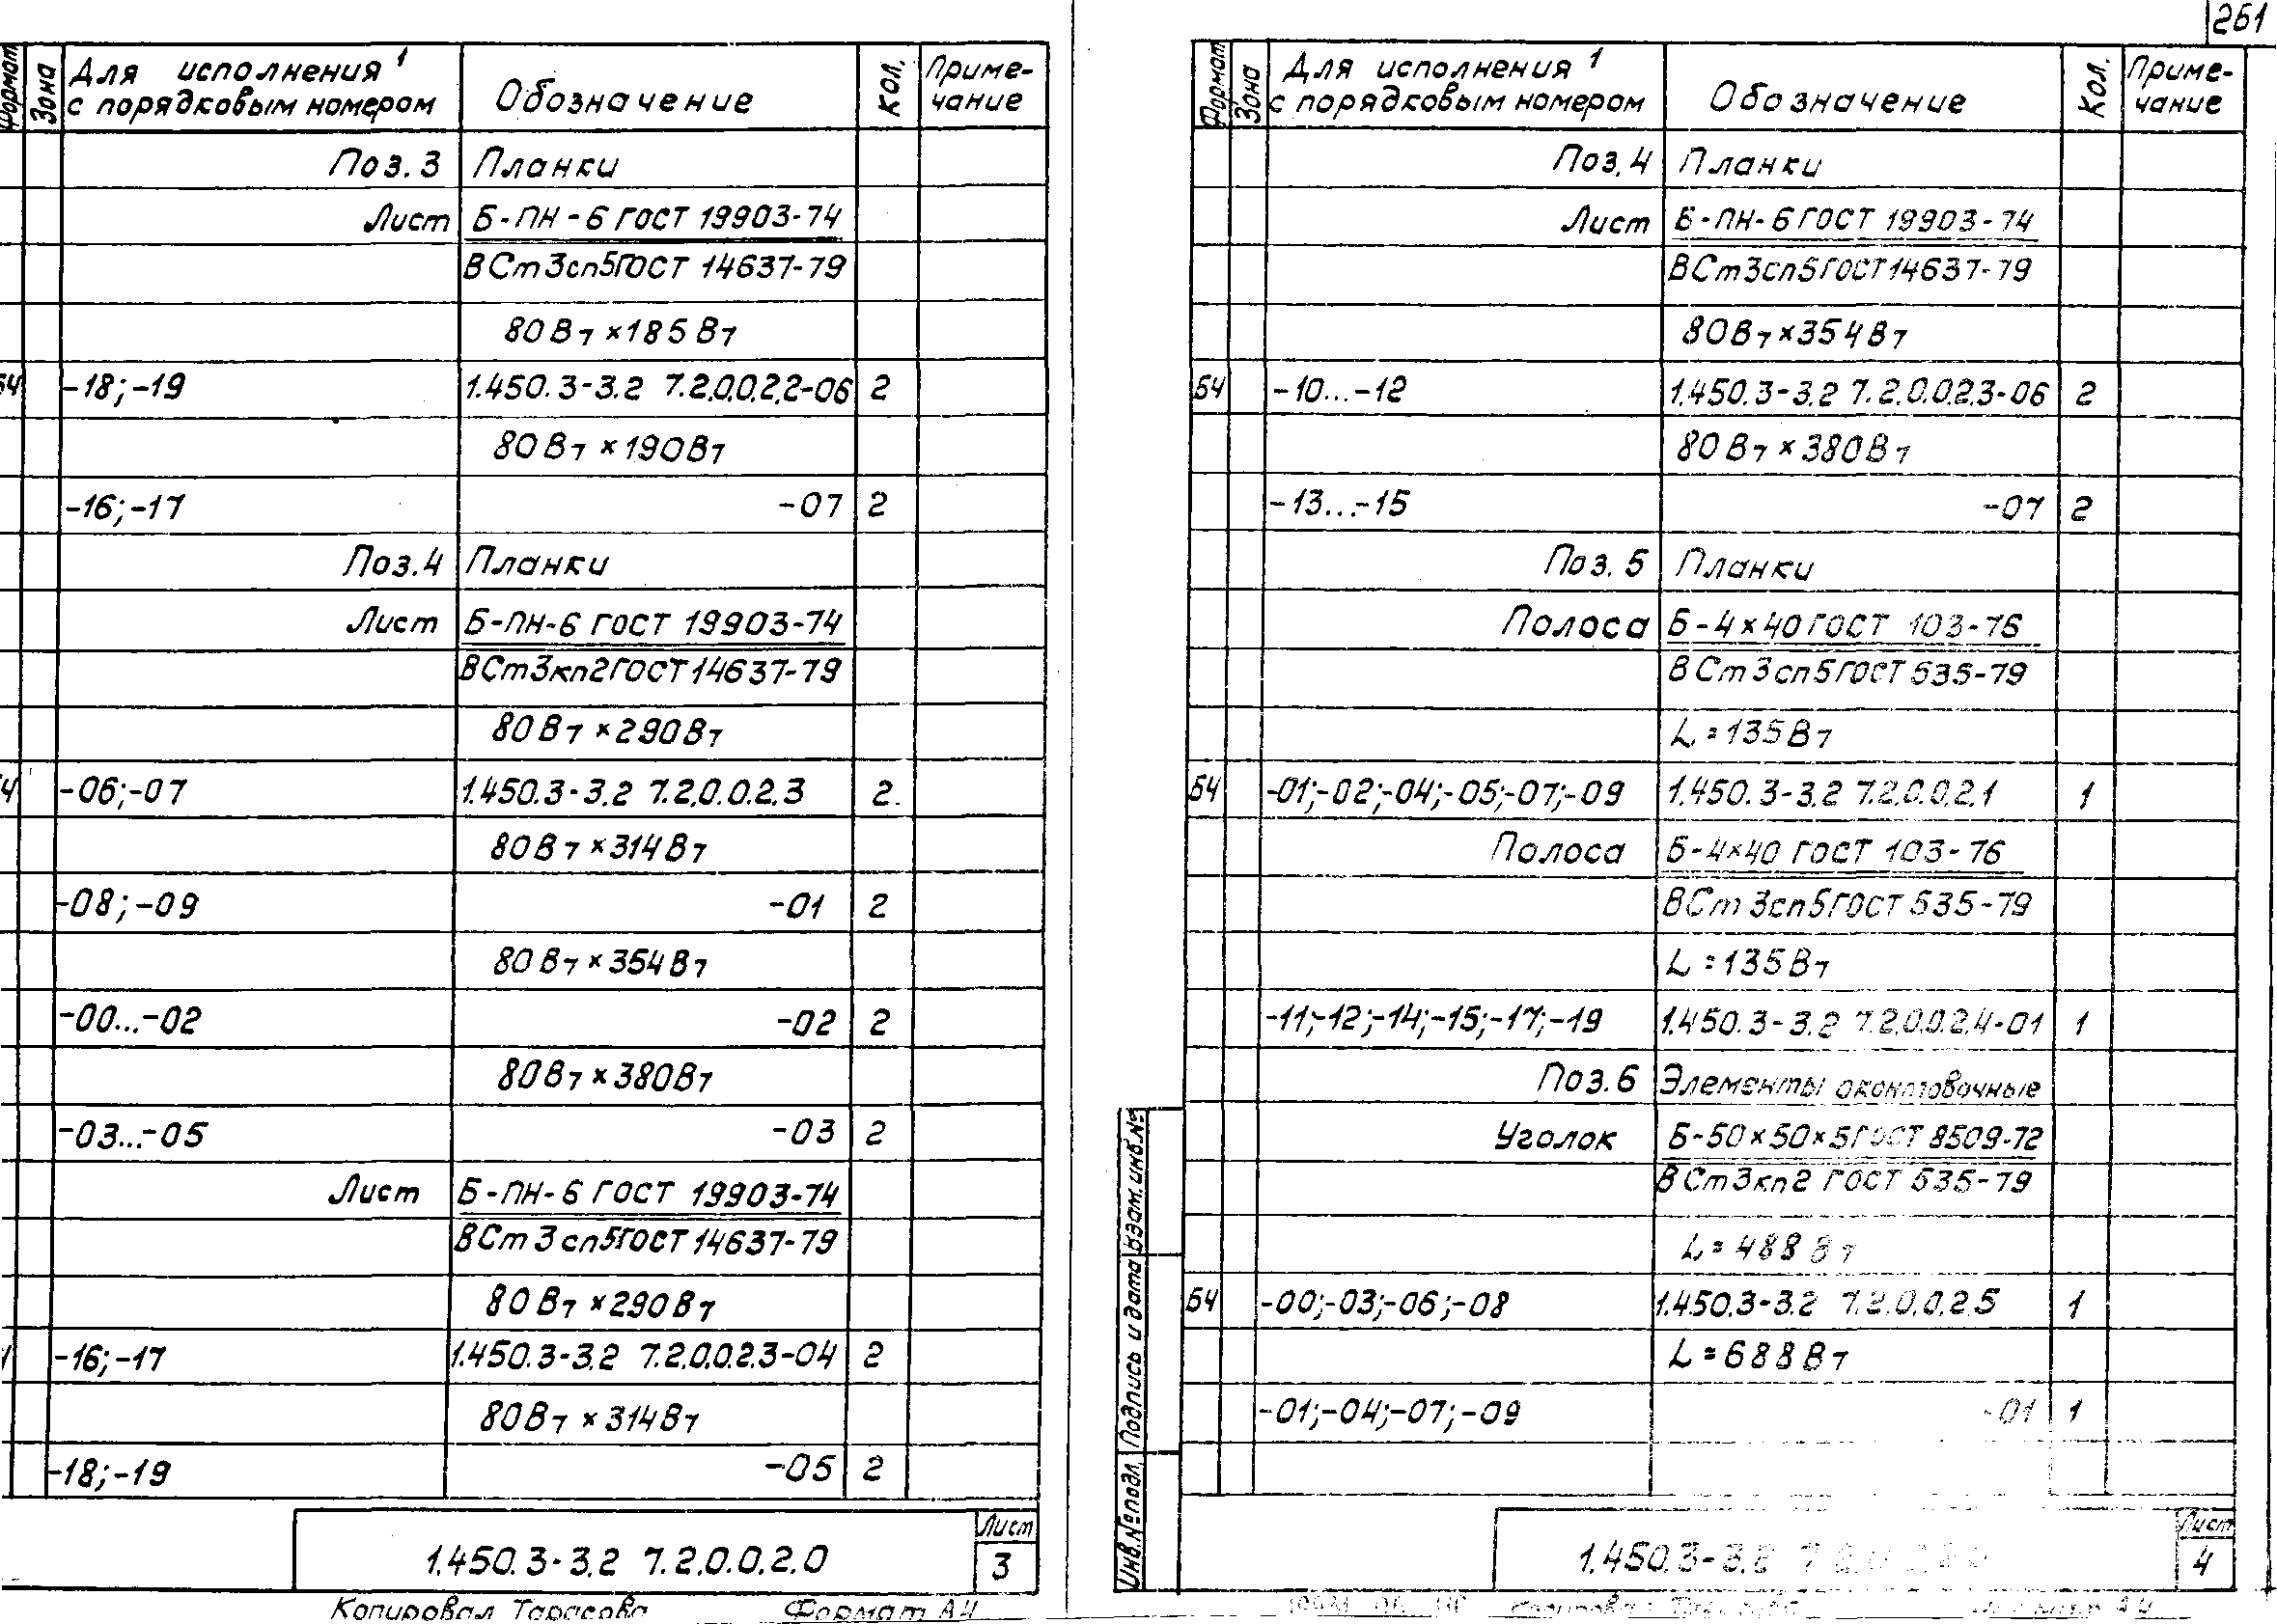 261
Формат Зона Для исполнения 1 с порядковым номером Обозначение Кол. Приме-чание
Поз.3 Планки
Лист Б-ПН-6 ГОСТ 19903-74
ВСт3сп5ГОСТ 14637-79
80Вт×185Вт
БЧ -18;-19 1.450.3-3.2 7.2.0.0.2.2-06 2
80Вт×190Вт
-16;-17 -07 2
Поз.4 Планки
Лист Б-ПН-6 ГОСТ 19903-74
ВСт3кп2ГОСТ 14637-79
80Вт×290Вт
-06;-07 1.450.3-3.2 7.2.0.0.2.3 2
80Вт×314Вт
-08;-09 -01 2
80Вт×354Вт
-00...-02 -02 2
80Вт×380Вт
-03...-05 -03 2
Лист Б-ПН-6 ГОСТ 19903-74
ВСт3сп5ГОСТ 14637-79
80Вт×290Вт
-16;-17 1.450.3-3.2 7.2.0.0.2.3-04 2
80Вт×314Вт
-18;-19 -05 2
1.450.3-3.2 7.2.0.0.2.0 Лист 3
Копировал Тарасова Формат А4
Формат Зона Для исполнения 1 с порядковым номером Обозначение Кол. Приме-чание
Поз.4 Планки
Лист Б-ПН-6 ГОСТ 19903-74
ВСт3сп5ГОСТ 14637-79
80Вт×354Вт
БЧ -10...-12 1.450.3-3.2 7.2.0.0.2.3-06 2
80Вт×380Вт
-13...-15 -07 2
Поз.5 Планки
Полоса Б-4×40 ГОСТ 103-76
ВСт3сп5ГОСТ 535-79
L=135Вт
БЧ -01;-02;-04;-05;-07;-09 1.450.3-3.2 7.2.0.0.2.1 1
Полоса Б-4×40 ГОСТ 103-76
ВСт3сп5ГОСТ 535-79
L=135Вт
-11;-12;-14;-15;-17;-19 1.450.3-3.2 7.2.0.0.2.4-01 1
Поз.6 Элементы оконтовочные
Уголок Б-50×50×5ГОСТ 8509-72
ВСт3кп2 ГОСТ 535-79
L=488Вт
БЧ -00;-03;-06;-08 1.450.3-3.2 7.2.0.0.2.5 1
L=688Вт
-01;-04;-07;-09 -01 1
Инв.№подл. Подпись и дата Взам.инв.№
1.450.3-3.2 7.2.0 Лист 4